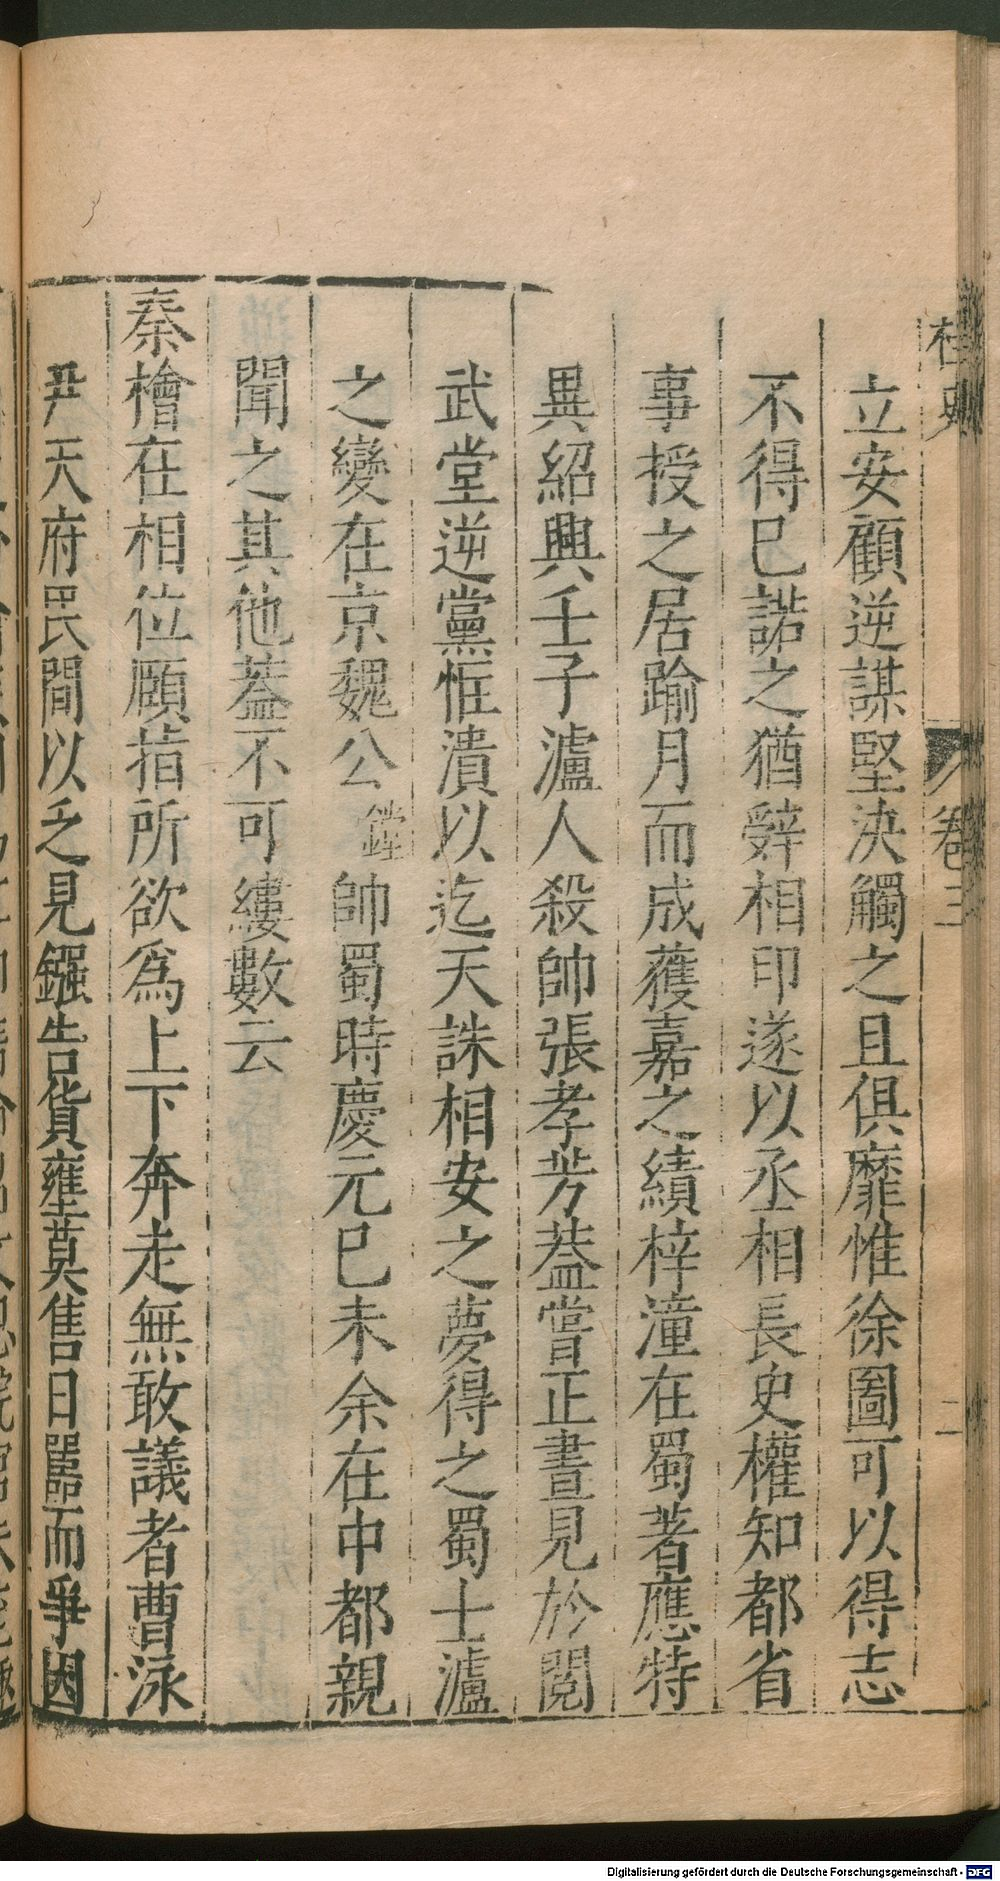 桯史
卷三
二
立安顧逆謀堅決觸之且俱靡惟徐圖可以得志
不得已諾之猶辭相印遂以丞相長史權知都省
事授之居踰月而成獲嘉之績梓潼在蜀著應特
異紹興壬子瀘人殺帥張孝芳葢嘗正晝見於閱
武堂逆黨恇潰以迄天誅相安之夢得之蜀士瀘
之變在京魏公鏜帥蜀時慶元己未余在中都親
聞之其他葢不可縷數云
秦檜在相位頤指所欲爲上下奔走無敢議者曹泳
尹天府民間以乏見鏹告貨壅莫售日嚣而爭因
Digitalisierung gefördert durch die Deutsche Forschungsgemeinschaft - DFG